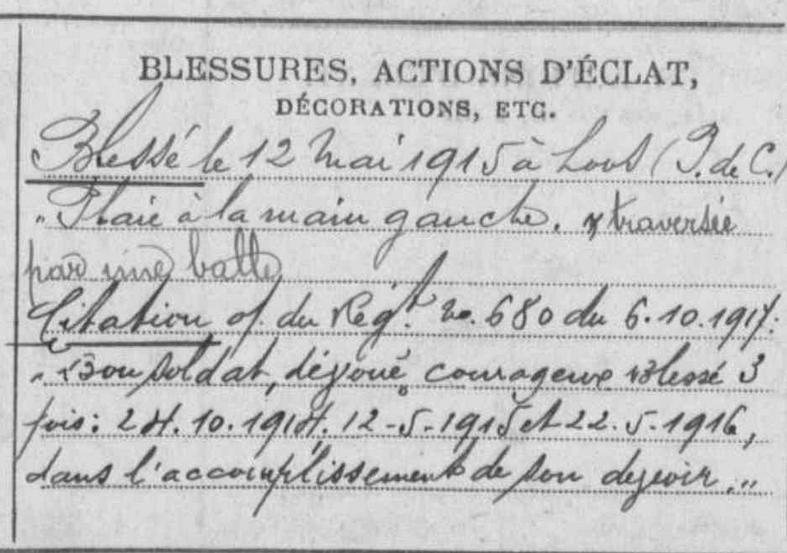 BLESSURES, ACTIONS D'ÉCLAT,
DÉCORATIONS, ETC.
Blessé le 12 Mai 1915 à Loos (P. de C.)
"Plaie à la main gauche. traversée
par une balle
Citation of. du Régt. no. 680 du 6.10.1917.
"Bon soldat, dévoué, courageux Blessé 3
fois: 24.10.1914. 12-5-1915 et 22.5-1916,
dans l'accomplissement de son devoir."